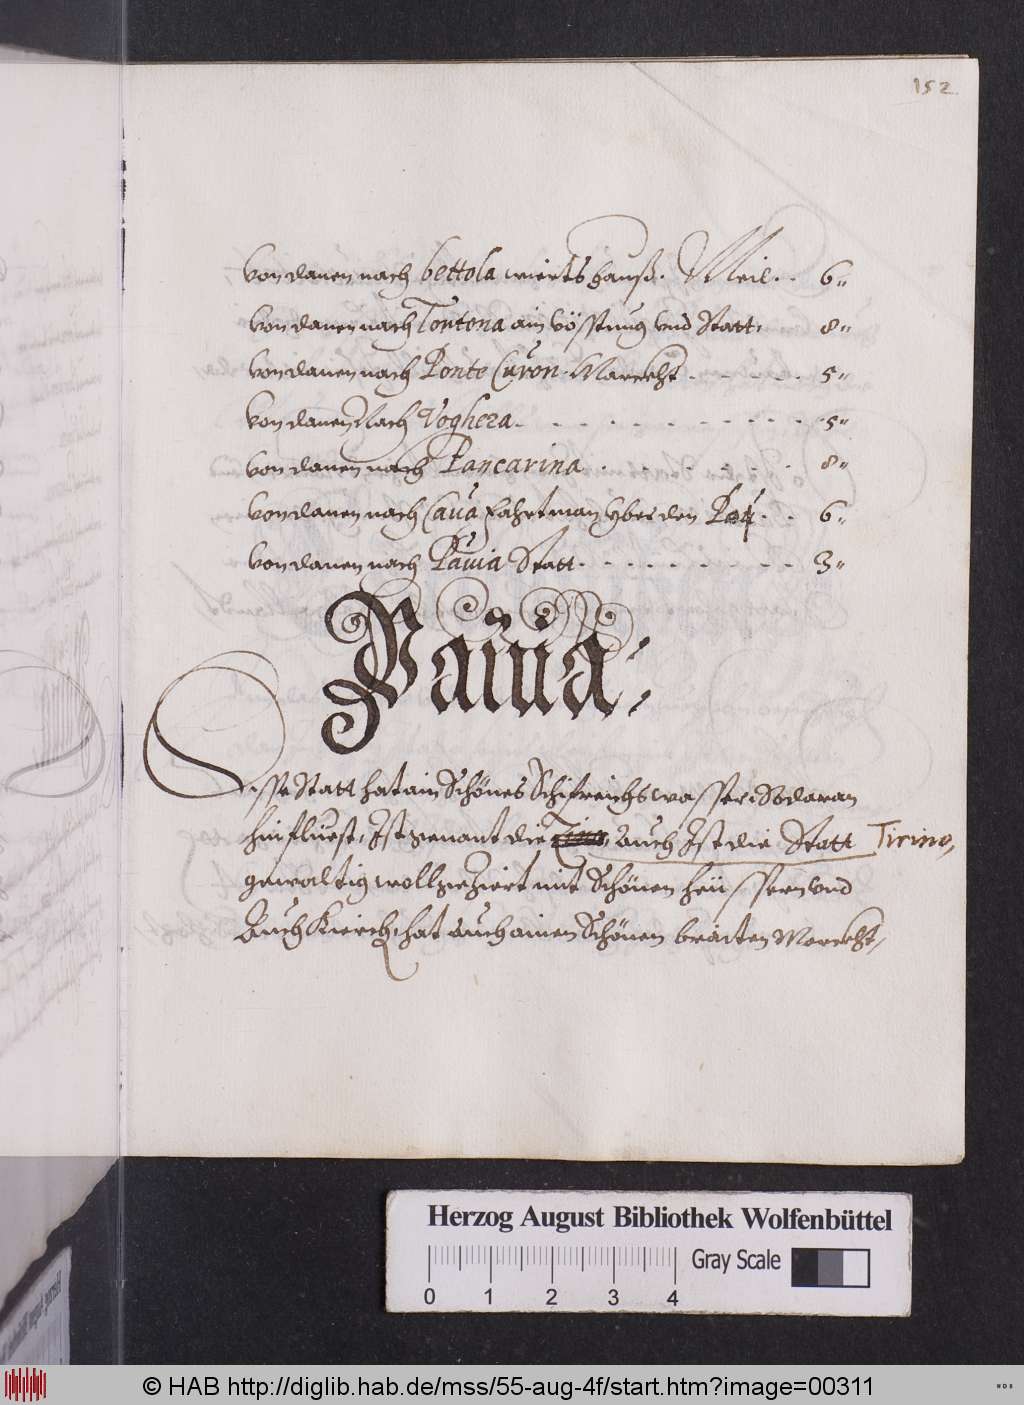 152
Von danen nach bettola wiertshauß. Meil. . 6"
Von danen nach Tortona ain Vösstung vnd Statt. 8"
Von danen nach Ponte Curon. Marckht . . . . . 5"
Von danen Nach Voghera. . . . . . . . . . . 5"
Von danen nach Pancarina . . . . . . . 8"
Von danen nach Caua fahrt man yber den Poŷ. . . 6"
Von danen nach Pauia Statt. . . . . . . . . 3"
Pauia:
Disse Statt hat ain Schönes Schifreichs wasser, So daran
hin fliesst, Ist genant die auch Ist die Statt Ticino,
gewaltig woll geziert mit Schönen heüssern vnd
Auch Kierch, hat auch ainen Schönen braiten Marckht,
Herzog August Bibliothek Wolfenbüttel
Gray Scale
0 1 2 3 4
© HAB http://diglib.hab.de/mss/55-aug-4f/start.htm?image=00311